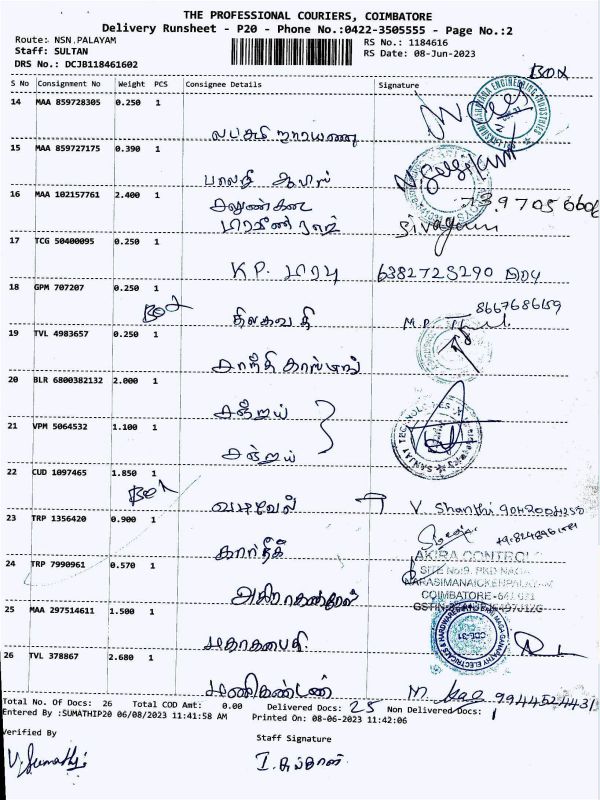 THE PROFESSIONAL COURIERS, COIMBATORE
Delivery Runsheet - P20 - Phone No.:0422-3505555 - Page No.:2
Route: NSN.PALAYAM
RS No.: 1184616
Staff: SULTAN
RS Date: 08-Jun-2023
DRS No.: DCJB118461602
Box
S No Consignment No Weight PCS Consignee Details Signature
14 MAA 859728305 0.250 1
லட்சுமி நாராயணா
15 MAA 859727175 0.390 1
பாலதி ஆபிஸ்
16 MAA 102157761 2.400 1
739705660
Sivagami
17 TCG 50400095 0.250 1
K.P. பாபு 6382725290
18 GPM 707207 0.250 1
Box
திலகவதி M.P. 8667686159
19 TVL 4983657 0.250 1
சாந்தி காஸ்டிங்
20 BLR 6800382132 2.000 1
சஞ்சய்
21 VPM 5064532 1.100 1
சஞ்சய்
SANJAY TECHNOLOGIES
22 CUD 1097465 1.850 1
Box
வடிவேல் V. Shanthi
23 TRP 1356420 0.900 1
கார்த்திக்
24 TRP 7990961 0.570 1
AKIRA CONTROLS
SITE No:9, RKD NAGAR
NARASIMANAICKENPALAYAM
COIMBATORE-641 031
25 MAA 297514611 1.500 1
மகாகணபதி
26 TVL 378867 2.680 1
மணிகண்டன் M 9944524431
Total No. Of Docs: 26 Total COD Amt: 0.00 Delivered Docs: 25 Non Delivered Docs: 1
Entered By :SUMATHIP20 06/08/2023 11:41:58 AM Printed On: 08-06-2023 11:42:06
Verified By Staff Signature
V. Sumathi I. சுல்தான்